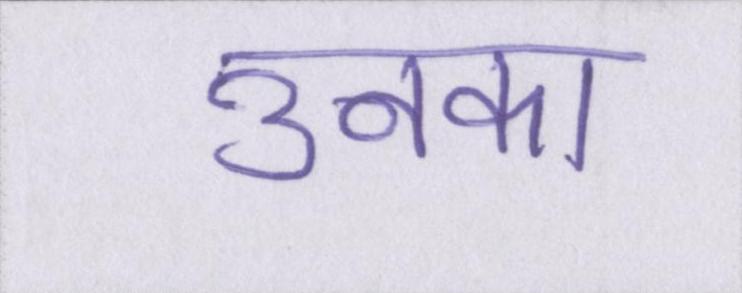 उनका